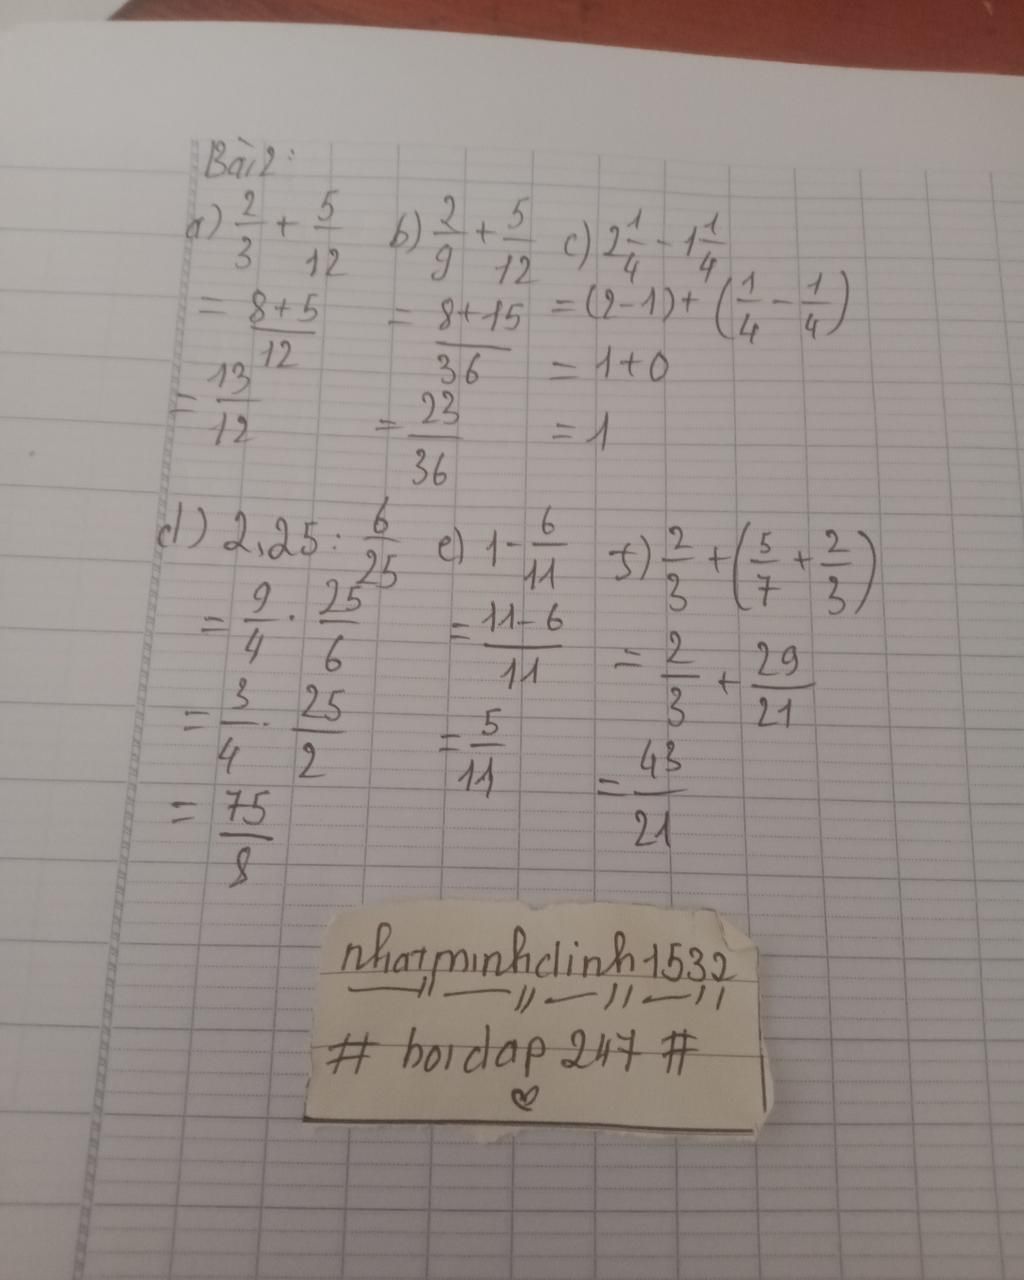 Bài 2:
a) 2/3 + 5/12
= 8+5/12
= 13/12
b) 2/9 + 5/12
= 8+15/36
= 23/36
c) 2 1/4 - 1 1/4
= (2-1) + (1/4 - 1/4)
= 1+0
= 1
d) 2,25 : 6/25
= 9/4 . 25/6
= 3/4 . 25/2
= 75/8
e) 1 - 6/11
= 11-6/11
= 5/11
f) 2/3 + (5/7 + 2/3)
= 2/3 + 29/21
= 43/21
nhatminhdinh1532
# hoidap 247 #